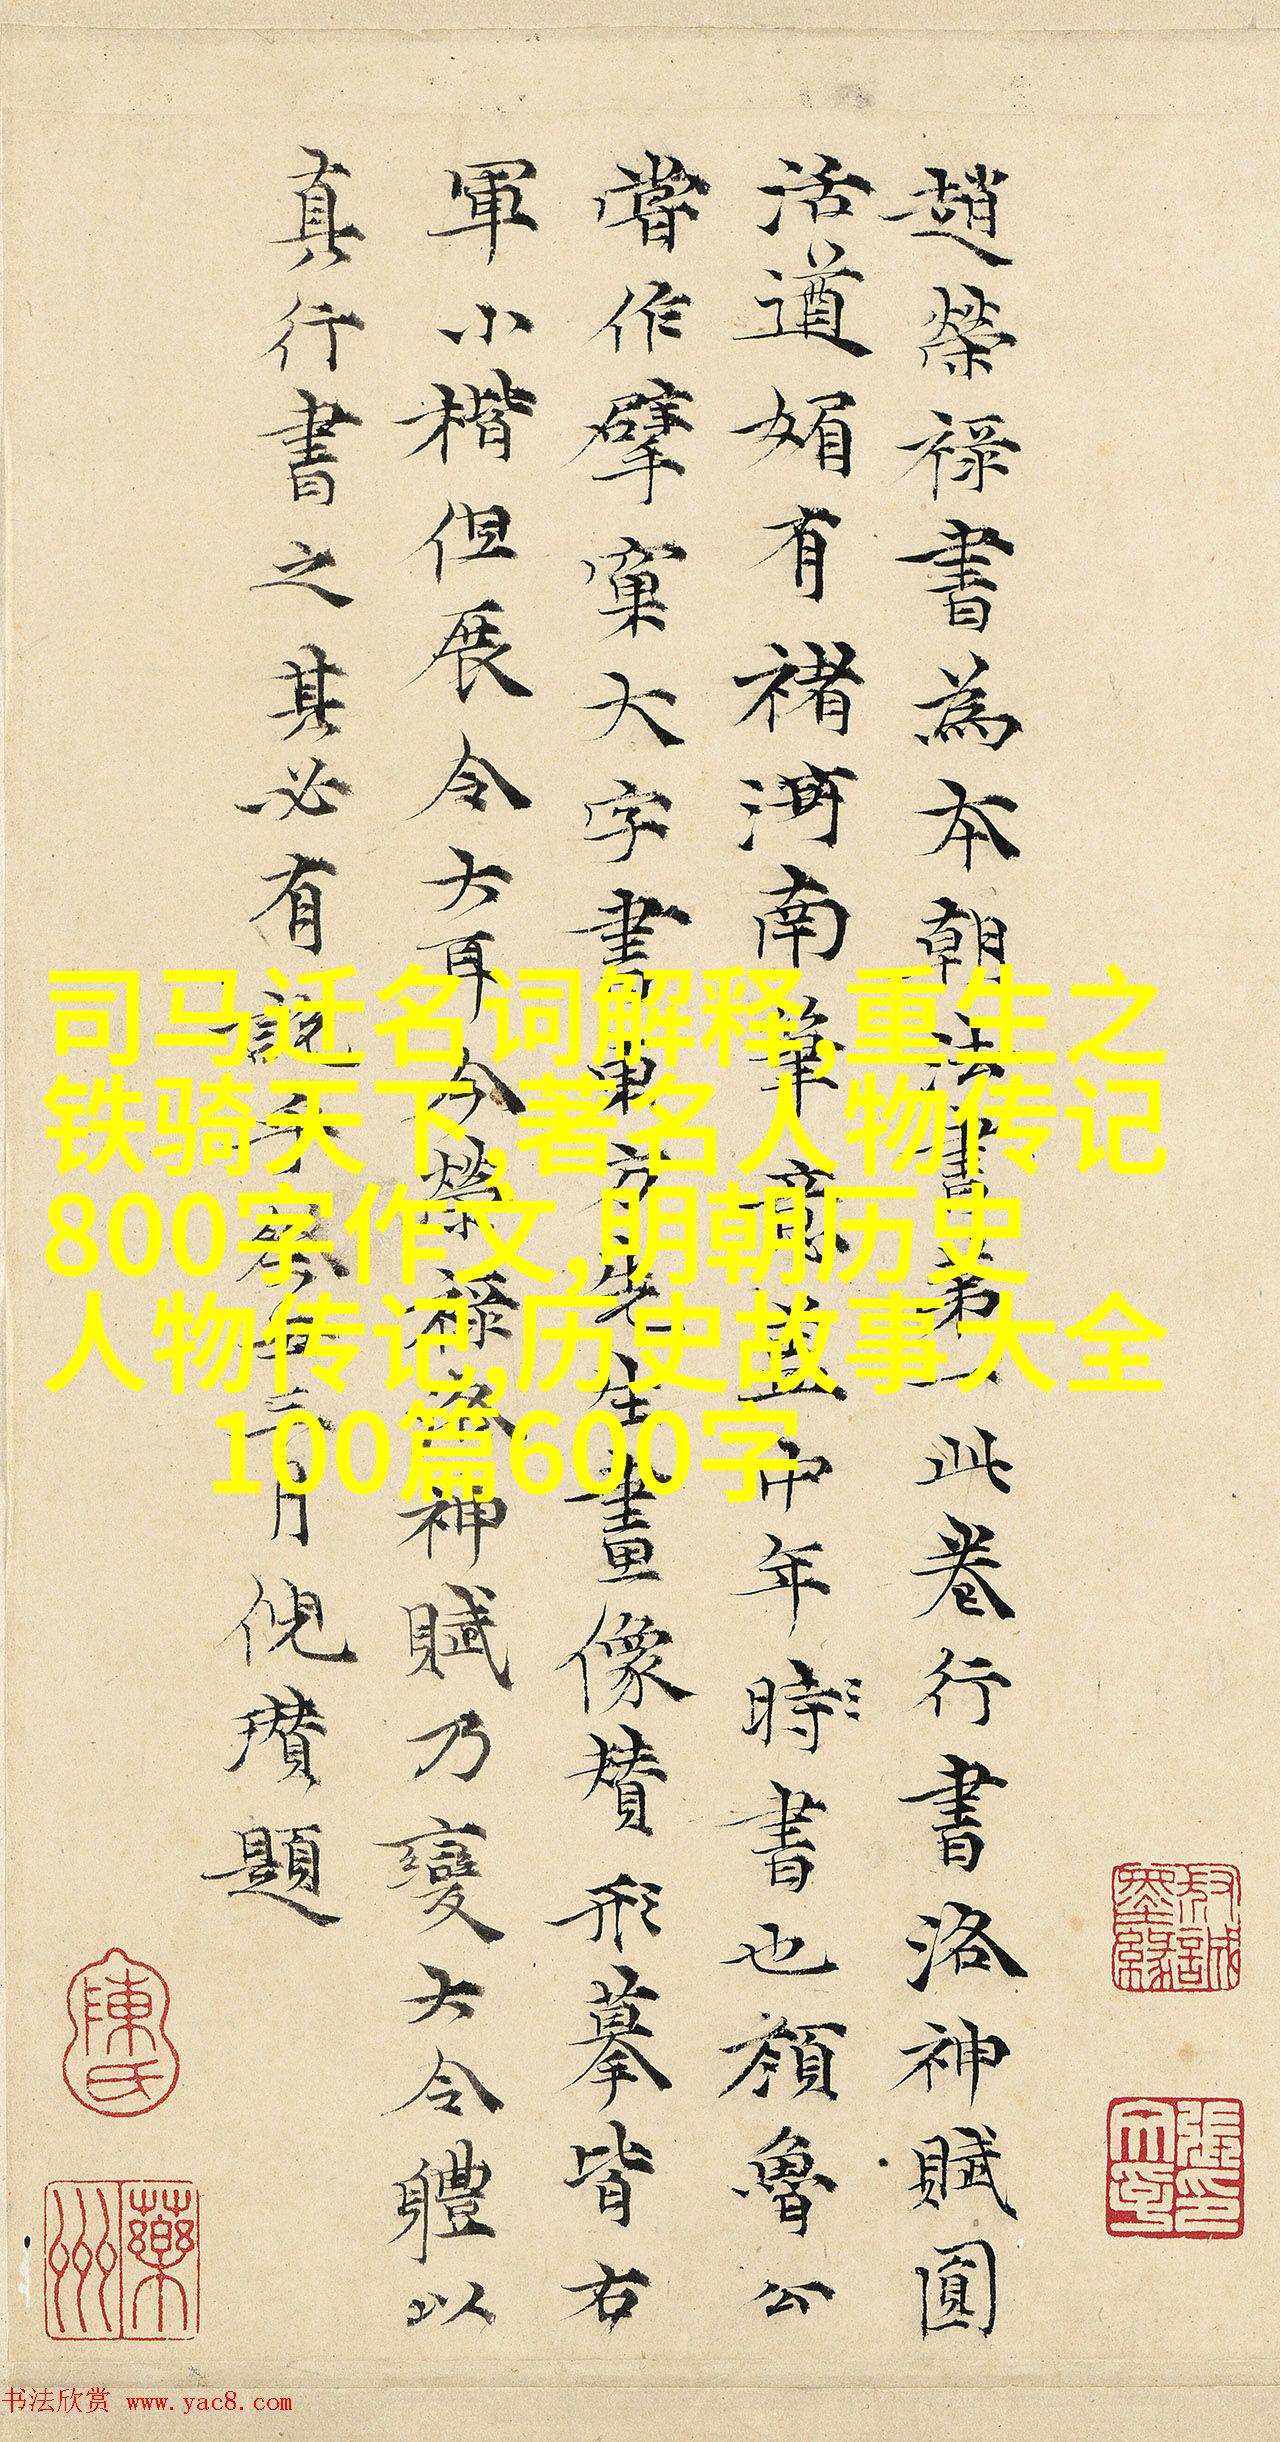 趙榮祿書為本朝法書第一此卷行書洛神賦圓
活遒媚有褚河南筆意蓋中年時書也顏魯公
嘗作擘窠大字書東方先生畫像贊形摹皆右
軍小楷但展令大耳今榮祿洛神賦乃變大令體以
真行書之其必有説乎癸丑三月倪瓚題
司马迁名词解释,重生之
铁骑天下,著名人物传记
800字作文,明朝历史
人物传记,历史故事大全
100篇600字
陳氏
书法欣赏 www.yac8.com